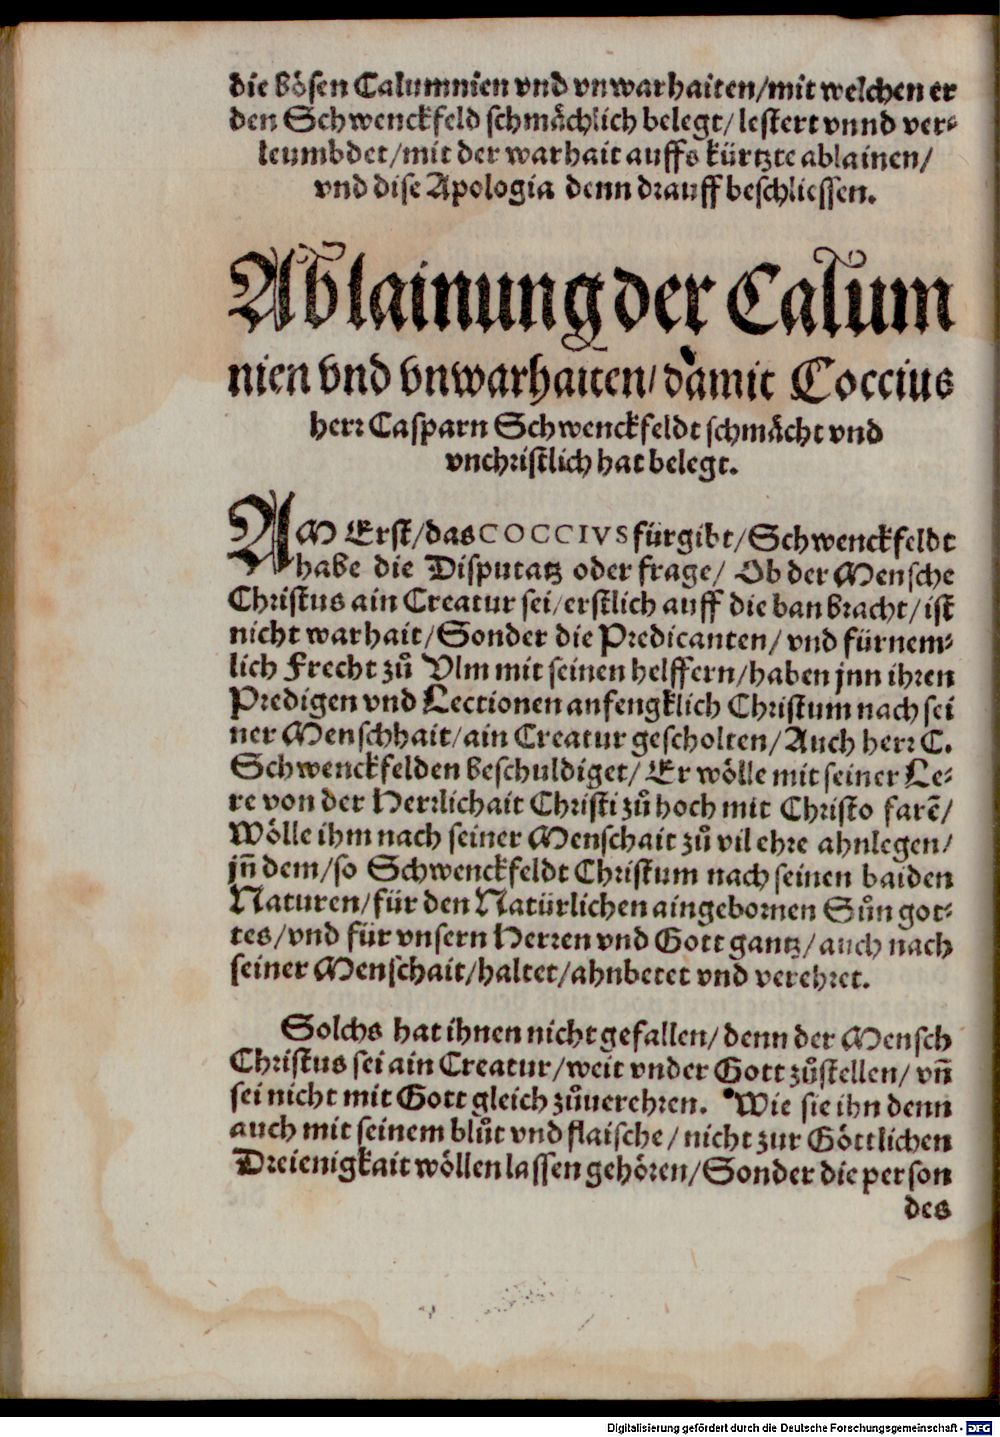 die bösen Calumnien vnd vnwarhaiten/mit welchen er
den Schwenckfeld schmächlich belegt/lestert vnnd ver⸗
leumbdet/mit der warhait auffs kürtzte ablainen/
vnd dise Apologia denn drauff beschliessen.
Ablainung der Calum
nien vnd vnwarhaiten/damit Coccius
herr Casparn Schwenckfeldt schmächt vnd
vnchristlich hat belegt.
AM Erst/das COCCIVS fürgibt/Schwenckfeldt
habe die Disputatz oder frage/ Ob der Mensche
Christus ain Creatur sei/erstlich auff die ban bracht/ist
nicht warhait/Sonder die Predicanten/vnd fürnem⸗
lich Frecht zů Vlm mit seinen helffern/haben jnn ihren
Predigen vnd Lectionen anfengklich Christum nach sei
ner Menschhait/ain Creatur gescholten/Auch herr C.
Schwenckfelden beschuldiget/Er wölle mit seiner Le⸗
re von der Herrlichait Christi zů hoch mit Christo farē/
Wölle ihm nach seiner Menschait zů vil ehre ahnlegen/
jñ dem/so Schwenckfeldt Christum nach seinen baiden
Naturen/für den Natürlichen aingebornen Sůn got⸗
tes/vnd für vnsern Herren vnd Gott gantz/auch nach
seiner Menschait/haltet/ahnbetet vnd verehret.
Solchs hat ihnen nicht gefallen/denn der Mensch
Christus sei ain Creatur/weit vnder Gott zůstellen/vñ
sei nicht mit Gott gleich zůuerehren. Wie sie ihn denn
auch mit seinem blůt vnd flaische/nicht zur Göttlichen
Dreienigkait wöllen lassen gehören/Sonder die person
des
Digitalisierung gefördert durch die Deutsche Forschungsgemeinschaft - DFG